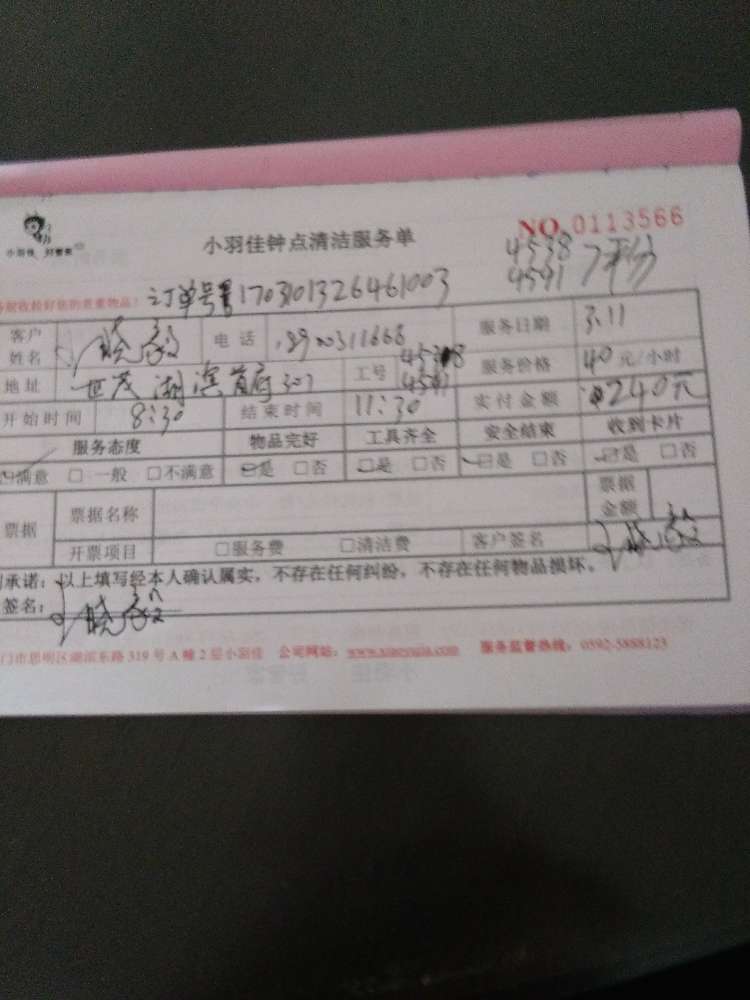 小羽佳 好管家
小羽佳钟点清洁服务单
NO. 0113566
4538
4591 平分
收检好您的贵重物品!
订单号 1703101326461003
客户姓名 电话 服务日期 3.11
地址 世茂湖滨首府 307 工号 服务价格 40 元/小时
开始时间 8:30 结束时间 11:30 实付金额 240元
服务态度 物品完好 工具齐全 安全结束 收到卡片
满意 □一般 □不满意 是 □否 是 □否 是 □否 是 □否
票据 票据名称 票据金额
开票项目 □服务费 □清洁费 客户签名
承诺:以上填写经本人确认属实,不存在任何纠纷,不存在任何物品损坏。
签名:
门市思明区湖滨东路 319 号 A 幢 2 层小羽佳 公司网站: 服务监督热线:0592-5888123